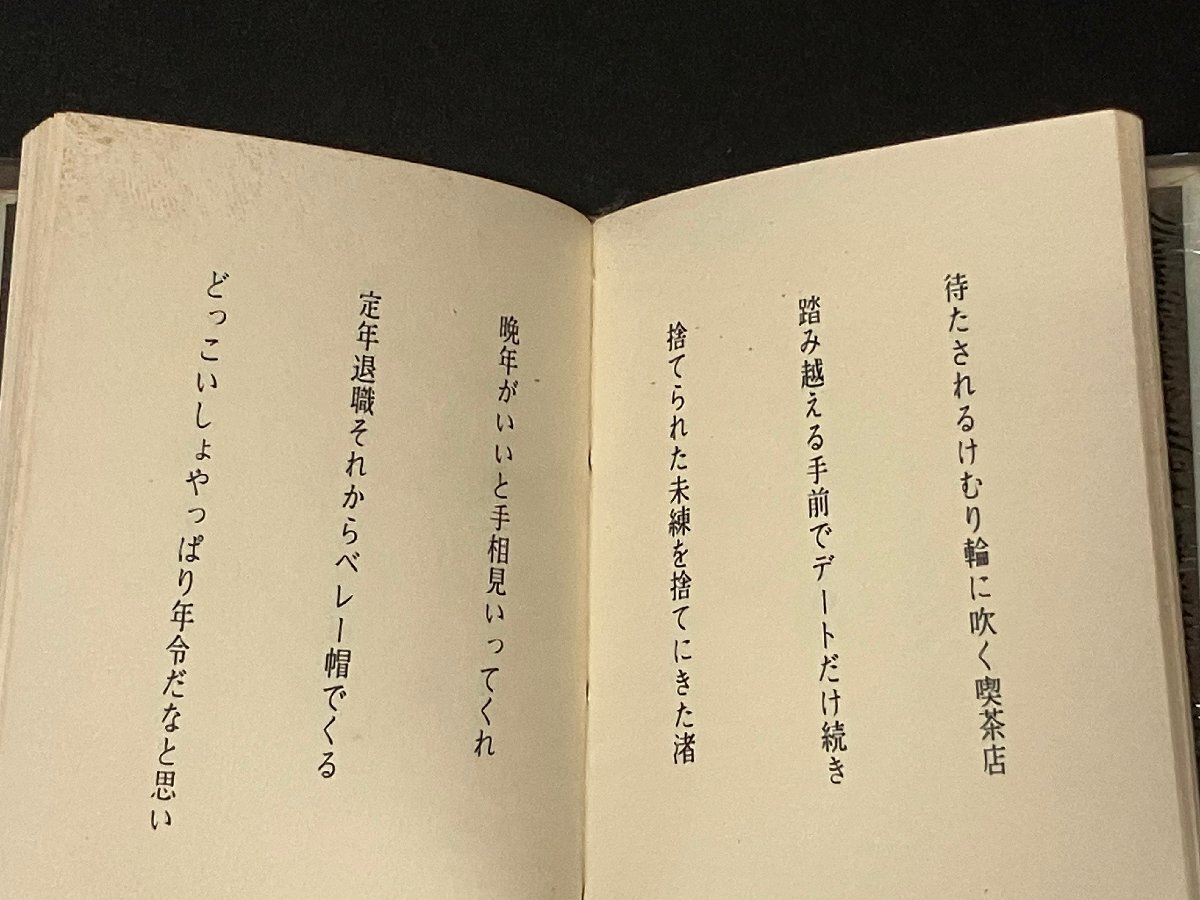 待たされるけむり輪に吹く喫茶店
踏み越える手前でデートだけ続き
捨てられた未練を捨てにきた渚
晩年がいいと手相見いってくれ
定年退職それからベレー帽でくる
どっこいしょやっぱり年令だなと思い